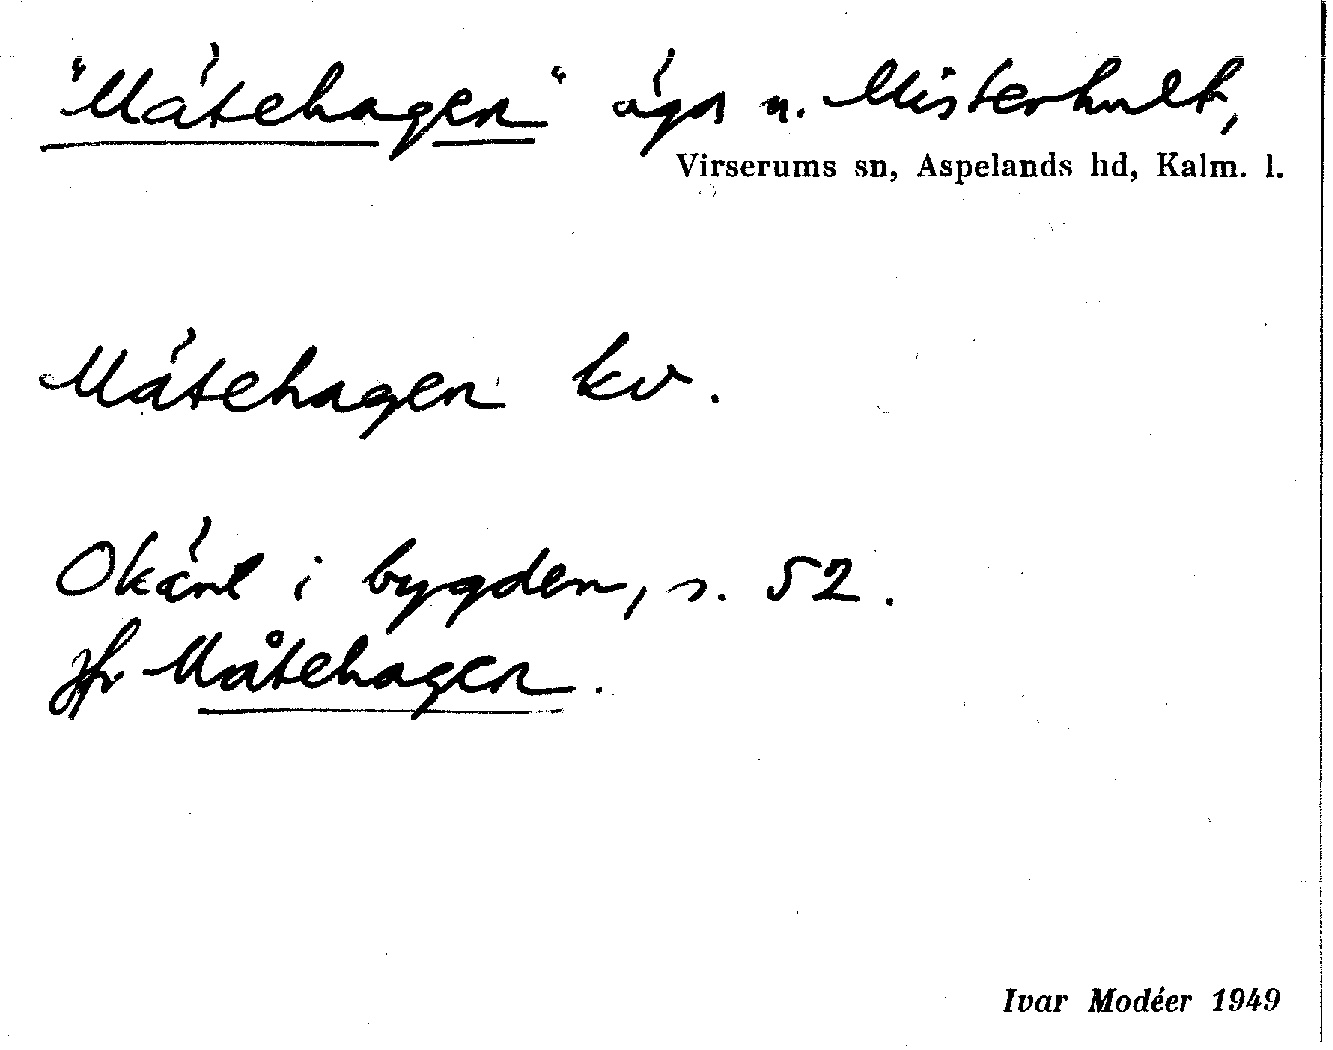 "Mätehagen" ägor u. Misterhult,
Virserums sn, Aspelands hd, Kalm. l.
Mätehagen kv.
Okänt i bygden, s. 52.
jfr Måtehagen.
Ivar Modéer 1949